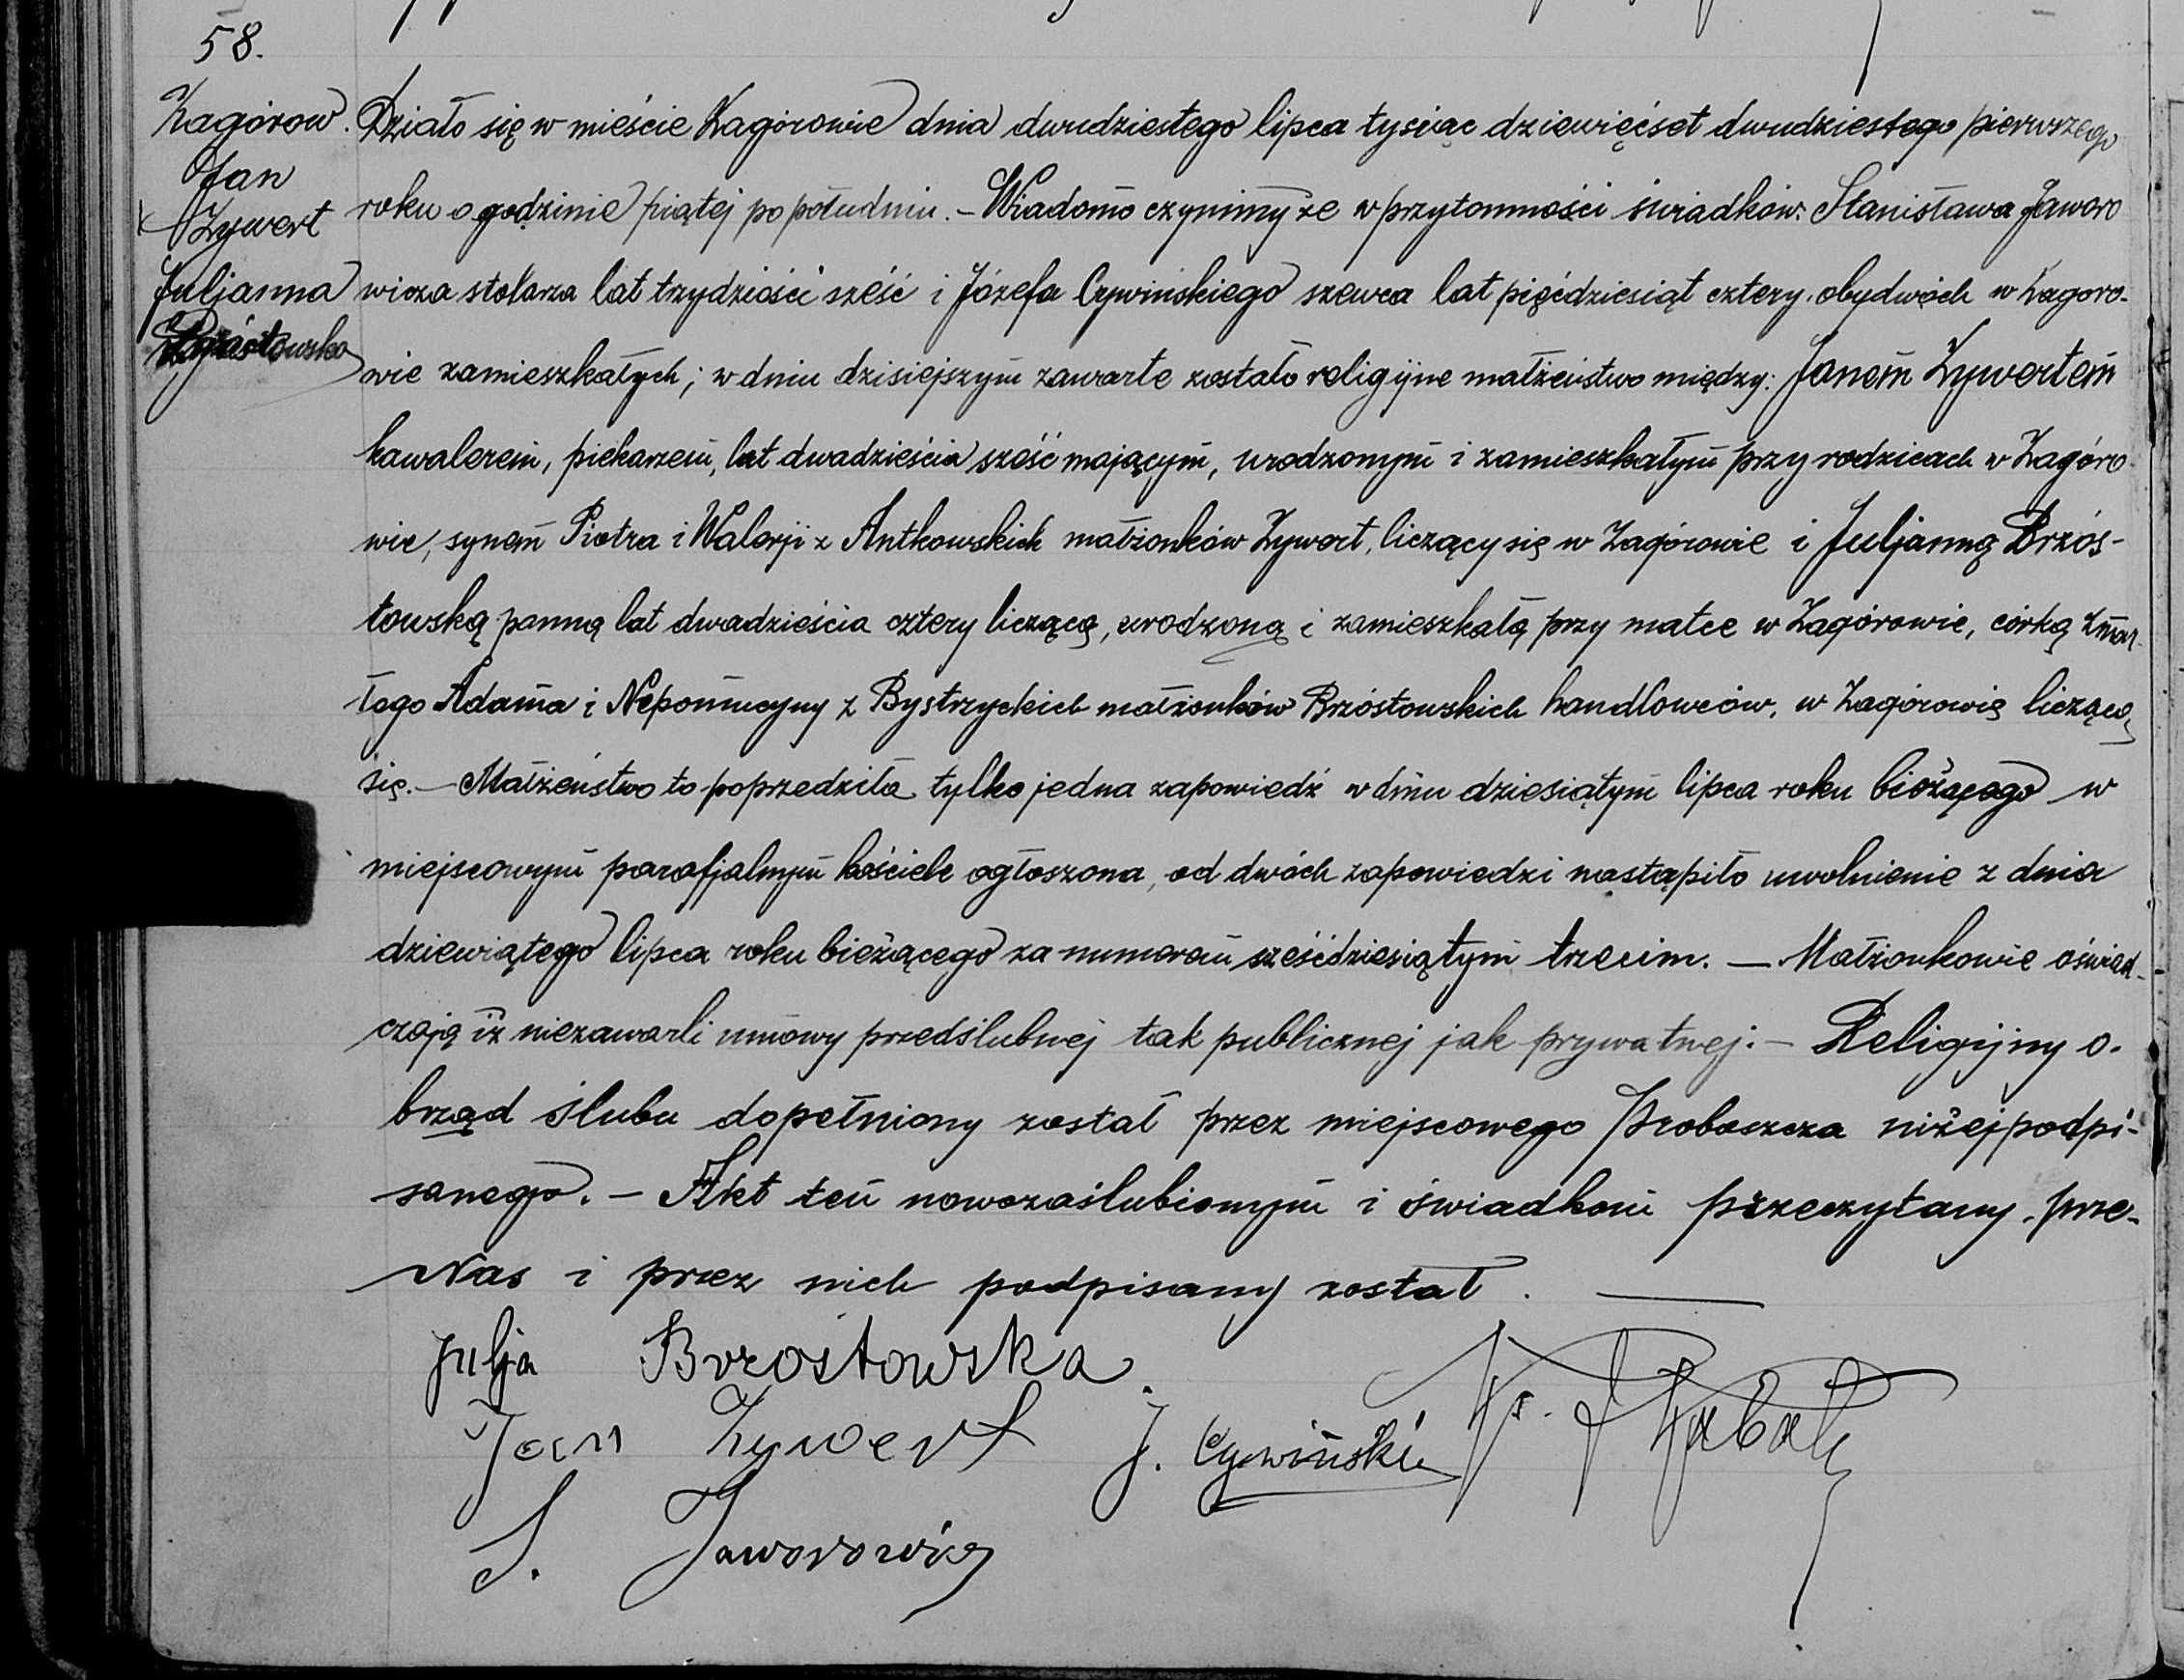 58.
Zagórow.
Jan
Zywert
Juljanna
Brzóstowska
Działo się w mieście Zagórowie dnia dwudziestego lipca tysiąc dziewięćset dwudziestego pierwszego
roku o godzinie piątej po południu. – Wiadomo czynimy że w przytomności świadków: Stanisława Jaworo
wicza stolarza lat trzydzieści sześć i Józefa Cywińskiego szewca lat pięćdziesiąt cztery, obydwóch w Zagoro-
wie zamieszkałych; w dniu dzisiejszym zawarte zostało religijne małżeństwo między: Janem Zywertem
kawalerem, piekarzem, lat dwadzieścia sześć mającym, urodzonym i zamieszkałym przy rodzicach w Zagóro-
wie, synem Piotra i Walerji z Antkowskich małżonków Zywert, liczący się w Zagórowie i Juljanną Brzós-
towską panną lat dwadzieścia cztery liczącą, urodzoną i zamieszkałą przy matce w Zagórowie, córką zmar-
łego Adama i Nepomucyny z Bystrzyckich małżonków Brzóstowskich handlowców, w Zagórowie liczącą
się. – Małżeństwo to poprzedziła tylko jedna zapowiedź w dniu dziesiątym lipca roku bieżącego w
miejscowym parafjalnym kościele ogłoszona, od dwóch zapowiedzi nastąpiło uwolnienie z dnia
dziewiątego lipca roku bieżącego za numerem sześćdziesiątym trzecim. – Małżonkowie oświad-
czają iż niezawarli umowy przedślubnej tak publicznej jak prywatnej. – Religijny o-
brząd ślubu dopełniony został przez miejscowego Proboszcza niżej podpi-
sanego. – Akt ten nowozaślubionym i świadkom przeczytany, prze-
Nas i przez nich podpisany został. —
Julja Brzostowska.
Jan Zywert J. Cywiński Ks.
S. Jaworowicz